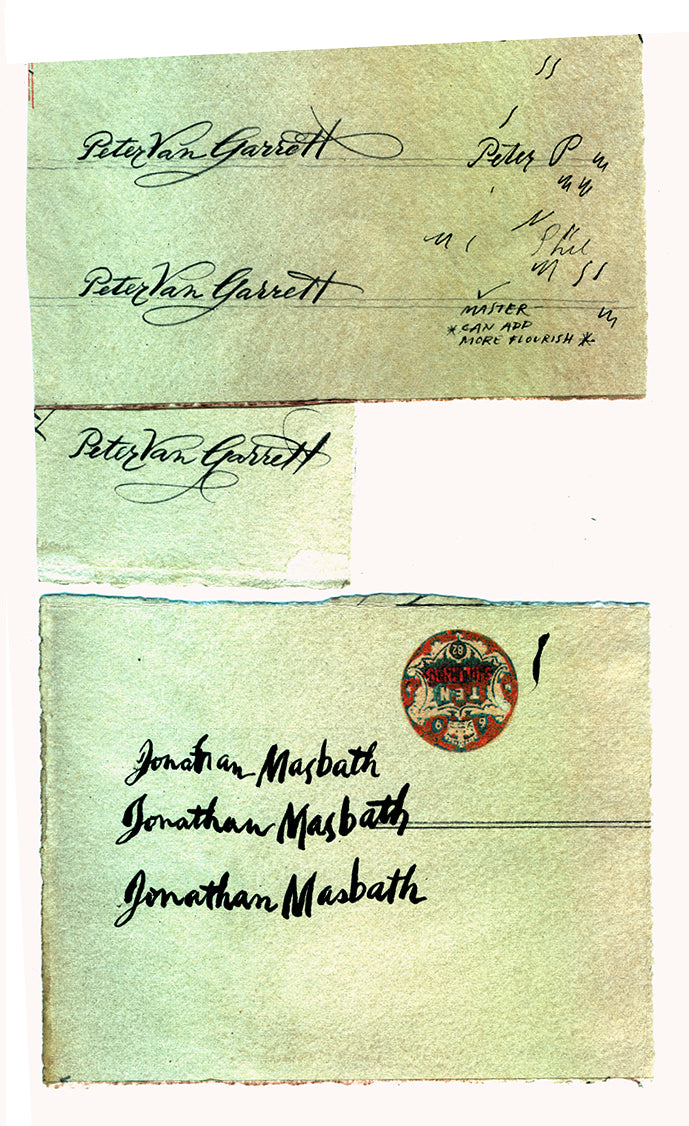 Peter Van Garrett
Peter P m
m m
Phil
Peter Van Garrett
MASTER
*CAN ADD
MORE FLOURISH*
m
Peter Van Garrett
82
TEN
Jonathan Masbath
Jonathan Masbath
Jonathan Masbath